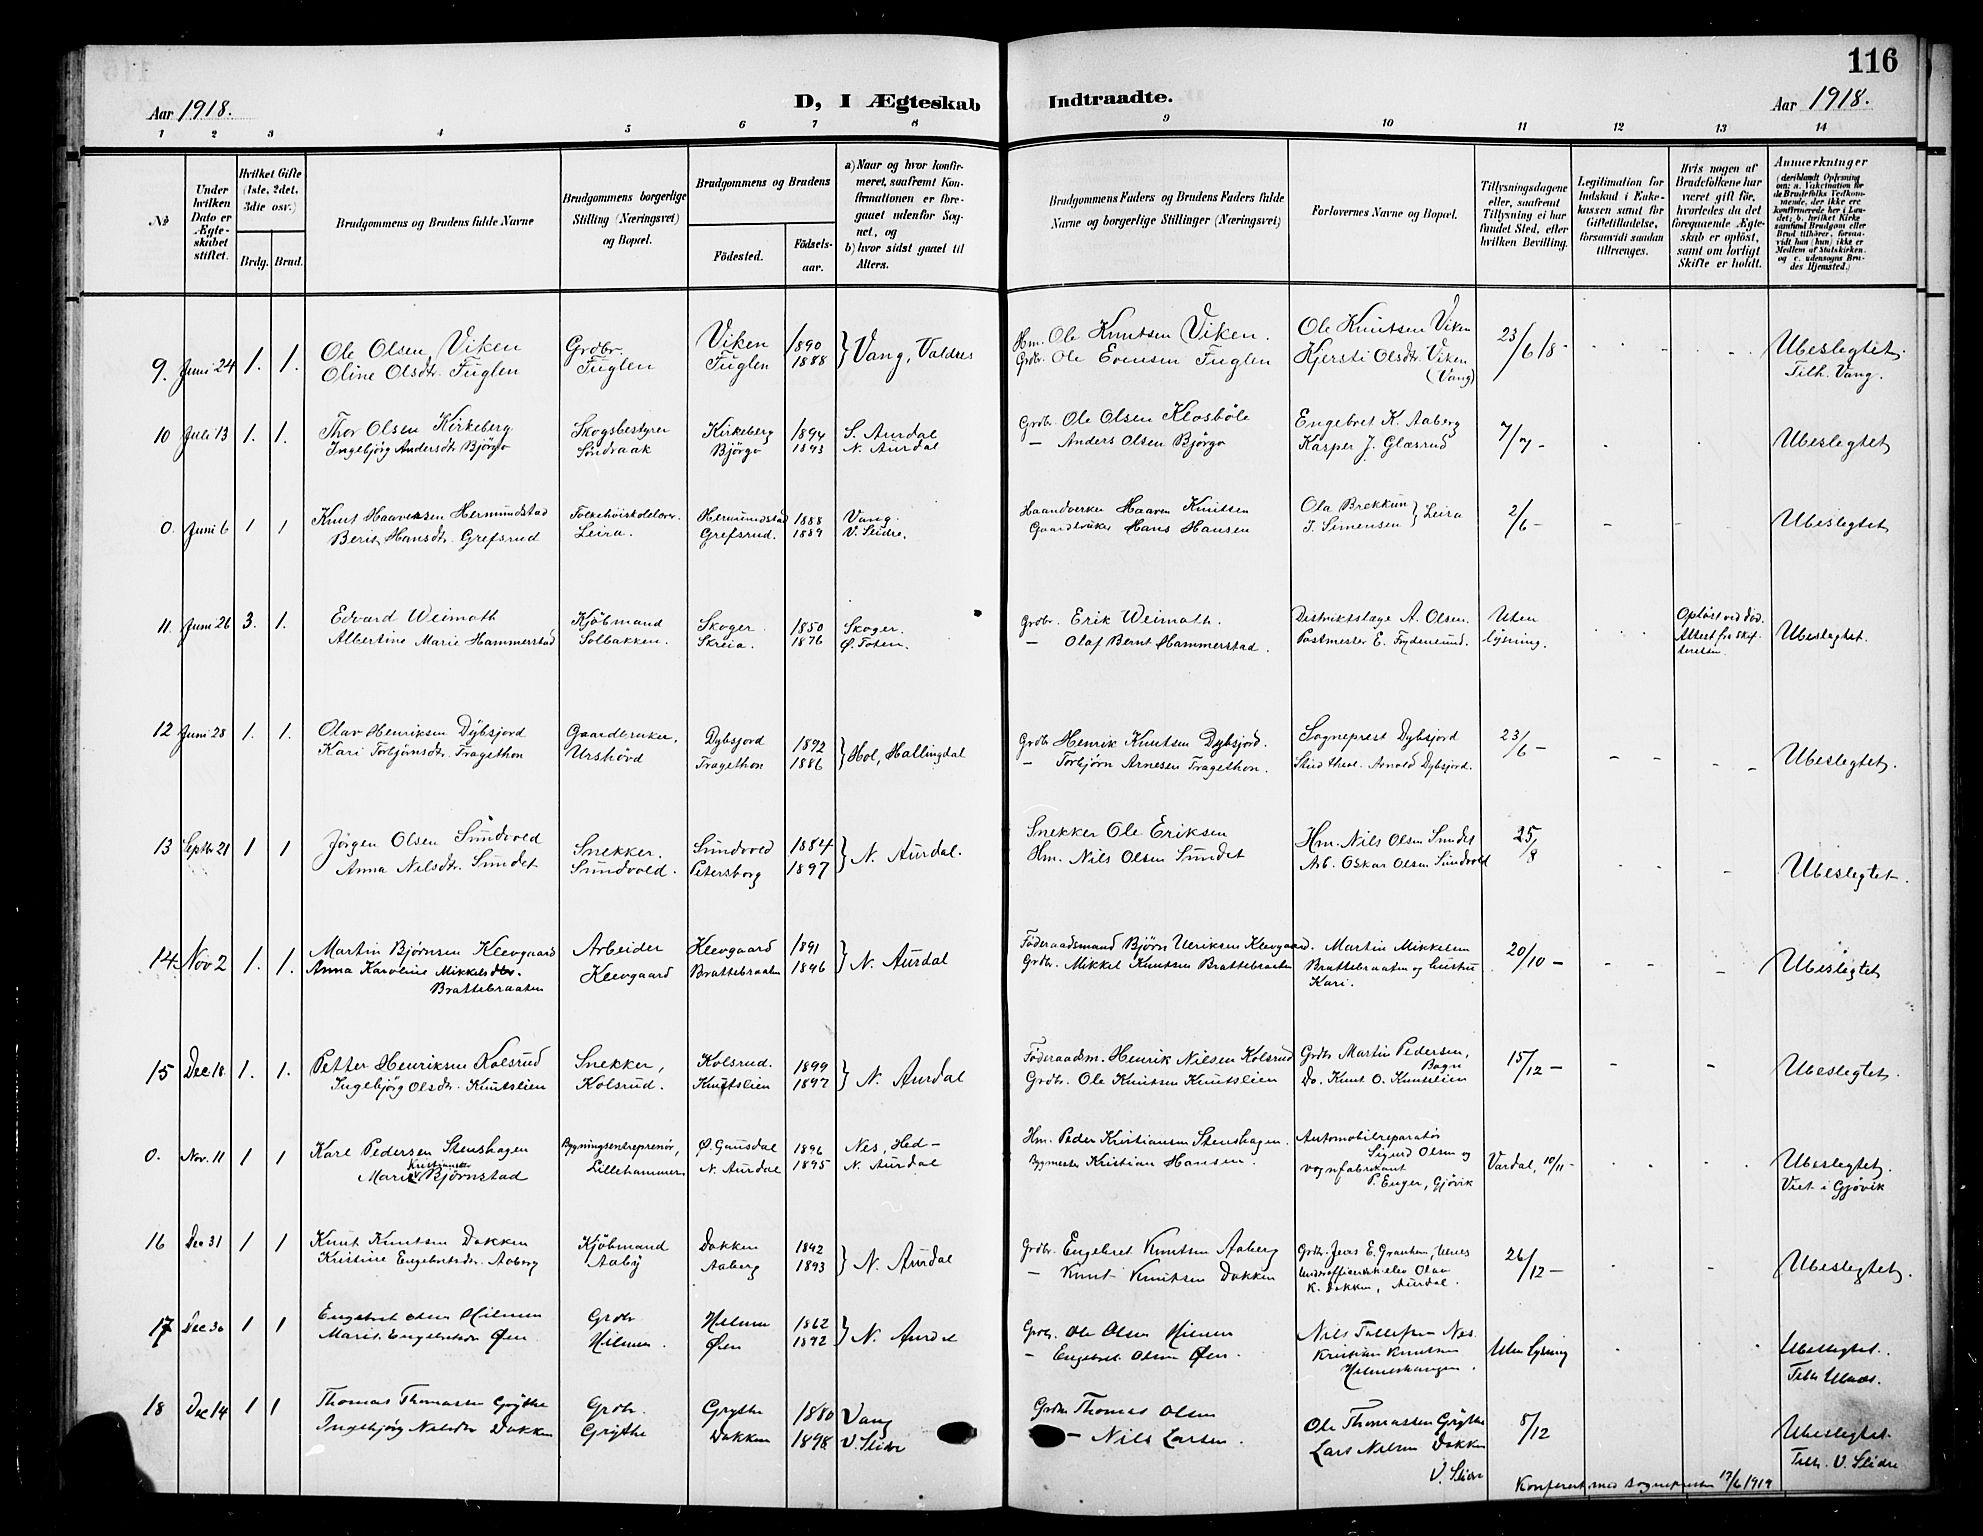 116
Aar 1918.
D, I Ægteskab Indtraadte.
Aar 1918.
1 2 3 4 5 6 7 8 9 10 11 12 13 14
№
Under hvilken Dato er Ægteskabet stiftet.
Hvilket Gifte (1ste, 2det, 3die osv.)
Brdg. Brud.
Brudgommens og Brudens fulde Navne
Brudgommens borgerlige Stilling (Næringsvei) og Bopæl.
Brudgommens og Brudens
Födested.
Födselsaar.
a) Naar og hvor konfirmeret, saafremt Konfirmationen er foregaaet udenfor Sognet, og
b) hvor sidst gaaet til Alters.
Brudgommens Faders og Brudens Faders fulde Navne og borgerlige Stillinger (Næringsvei)
Forlovernes Navne og Bopæl.
Tillysningsdagene eller, saafremt Tillysning ei har fundet Sted, efter hvilken Bevilling.
Legitimation for Indskud i Enkekassen samt for Giftetilladelse, forsaavidt saadan tiltrænges.
Hvis nogen af Brudefolkene har været gift för, hvorledes da det foregaaende Ægteskab er oplöst, samt om lovligt Skifte er holdt.
Anmærkninger (deriblandt Oplysning om: a. Vakcination for de Brudefolks Vedkommende, der ikke ere konfirmerede her i Landet; b. hvilket Kirkesamfund Brudgom eller Brud tilhörer, forsaavidt han (hun) ikke er Medlem af Statskirken. og c. udensogns Brudes Hjemsted.)
9. Juni 24 1. 1. Ole Olsen Viken Grdbr. Viken 1890 } Vang, Valdres Hm. Ole Knutsen Viken. Ole Knutsen Viken 23/6 18 - Ubeslegtet.
Oline Olsdtr. Fuglen Fuglen Fuglen 1888 Grdbr. Ole Evensen Fuglen Kjersti Olsdtr. Viken (Vang) Tilh. Vang.
10 Juli 13 1. 1. Thor Olsen Kirkeberg Skogsbestyrer Kirkeberg 1894 S. Aurdal Grdbr. Ole Olsen Klosböle Engebret K. Aaberg 7/7 - Ubeslegtet
Ingebjörg Andersdtr. Björgo Sundvaak Björgo 1893 N. Aurdal — Anders Olsen Björgo Kasper J. Glæsrud
0. Juni 6 1 1 Knut Haavensen Hermundstad Folkehöiskolelær. Hermundstad 1888 Vang. Haandverker Haaven Knutsen Ola Brekkun } Leira 2/6 - Ubeslegtet
Berit Hansdtr. Grefsrud Leira. Grefsrud. 1889 V. Slidre. Gaardbruker Hans Hansen J. Simensen
11. Juni 26 3. 1. Edvard Weimoth Kjöbmand Skoger. 1850 Skoger. Grdbr. Erik Weimoth. Distriktslæge A. Olsen. Uten lysning. Oplöst ved död. Attest fra skifteretten. Ubeslegtet.
Albertine Marie Hammerstad Solbakken. Skreia. 1876 Ø. Toten. — Olaf Bernt Hammerstad. Postmester E. Frydenlund.
12 Juni 28 1. 1. Olav Henriksen Dybsjord Gaardbruker, Dybsjord 1892 } Hol, Hallingdal Grdbr. Henrik Knutsen Dybsjord. Sogneprest Dybsjord 23/6 - Ubeslegtet.
Kari Torbjörnsdtr. Fragethon Urshövd Fragethon 1886 — Torbjörn Arnesen Fragethon. Stud. theol. Arnold Dybsjord.
13 Septbr 21 1 1 Jörgen Olsen Sundvold Snekker. Sundvold 1884 } N. Aurdal. Snekker Ole Eriksen Hm. Nils Olsen Sundet 25/8 Ubeslegtet.
Anna Nilsdtr. Sundet Sundvold. Petersborg 1897 Hm. Nils Olsen Sundet Arb. Oskar Olsen Sundvold
14 Nov 2 1. 1. Martin Björnsen Klevgaard Arbeider Klevgaard 1891 } N. Aurdal Föderaadsmand Björn Ulriksen Klevgaard. Martin Mikkelsen 20/10 - Ubeslegtet
Anna Karoline Mikkelsdtr. Brattebraaten Klevgaard Brattebraaten 1896 Grdbr. Mikkel Knutsen Brattebraaten Brattebraaten og hustru Kari.
15 Dec 18 1. 1. Petter Henriksen Kolsrud Snekker, Kolsrud. 1899 } N. Aurdal Föderaadsm. Henrik Nilsen Kolsrud Grdbr. Martin Pedersen, Bagn 15/12 - Ubeslegtet.
Ingebjörg Olsdtr. Knutslien Kolsrud. Knutslien 1897 Grdbr. Ole Knutsen Knutslien Do. Knut O. Knutslien
0. Nov. 11 1 1 Karl Pedersen Stenshagen Bygningsentreprenör, Ø. Gausdal 1896 Nes, Hed- Hm. Peder Kristiansen Stenshagen. Automobilreparatör Sigurd Olsen og Vardal, 10/11 - Ubeslegtet.
Marie Kristiansen Björnstad Lillehammer N. Aurdal 1895 N. Aurdal Bygmester Kristian Hansen. vognfabrikant P. Enger, Gjövik Viet i Gjövik
16 Dec 31 1 1 Knut Knutsen Dokken Kjöbmand Dokken 1892 } N. Aurdal Grdbr. Engebret Knutsen Aaberg Grdbr. Jens E. Granheim, Ulnes 26/12 - Ubeslegtet.
Kristine Engebretsdtr. Aaberg Aaby Aaberg 1893 — Knut Knutsen Dokken Underofficerselev Olav K. Dokken, Aurdal.
17 Dec 30 1 1 Engebret Olsen Hilmen Grdbr Hilmen 1862 } N. Aurdal Grdbr. Ole Olsen Hilmen Nils Tollefsen Nes. Uten lysning Ubeslegtet.
Marit Engebretsdtr Øen Hilmen. Øen 1872 — Engebret Olsen Øen. Kristian Knutsen Hilmenhaugen. Tilh. Ulnes.
18 Dec 14 1 1 Thomas Thomassen Grythe Grdbr. Grythe 1880 Vang Grdbr Thomas Olsen Ole Thomassen Grythe 8/12 Ubeslegtet.
Ingebjörg Nilsdtr Dokken Grythe Dokken 1898 V. Slidre — Nils Larsen. Lars Nilsen Dokken V. Slidre Tilh. V. Slidre
Konferert med sognepresten 17/6 1919